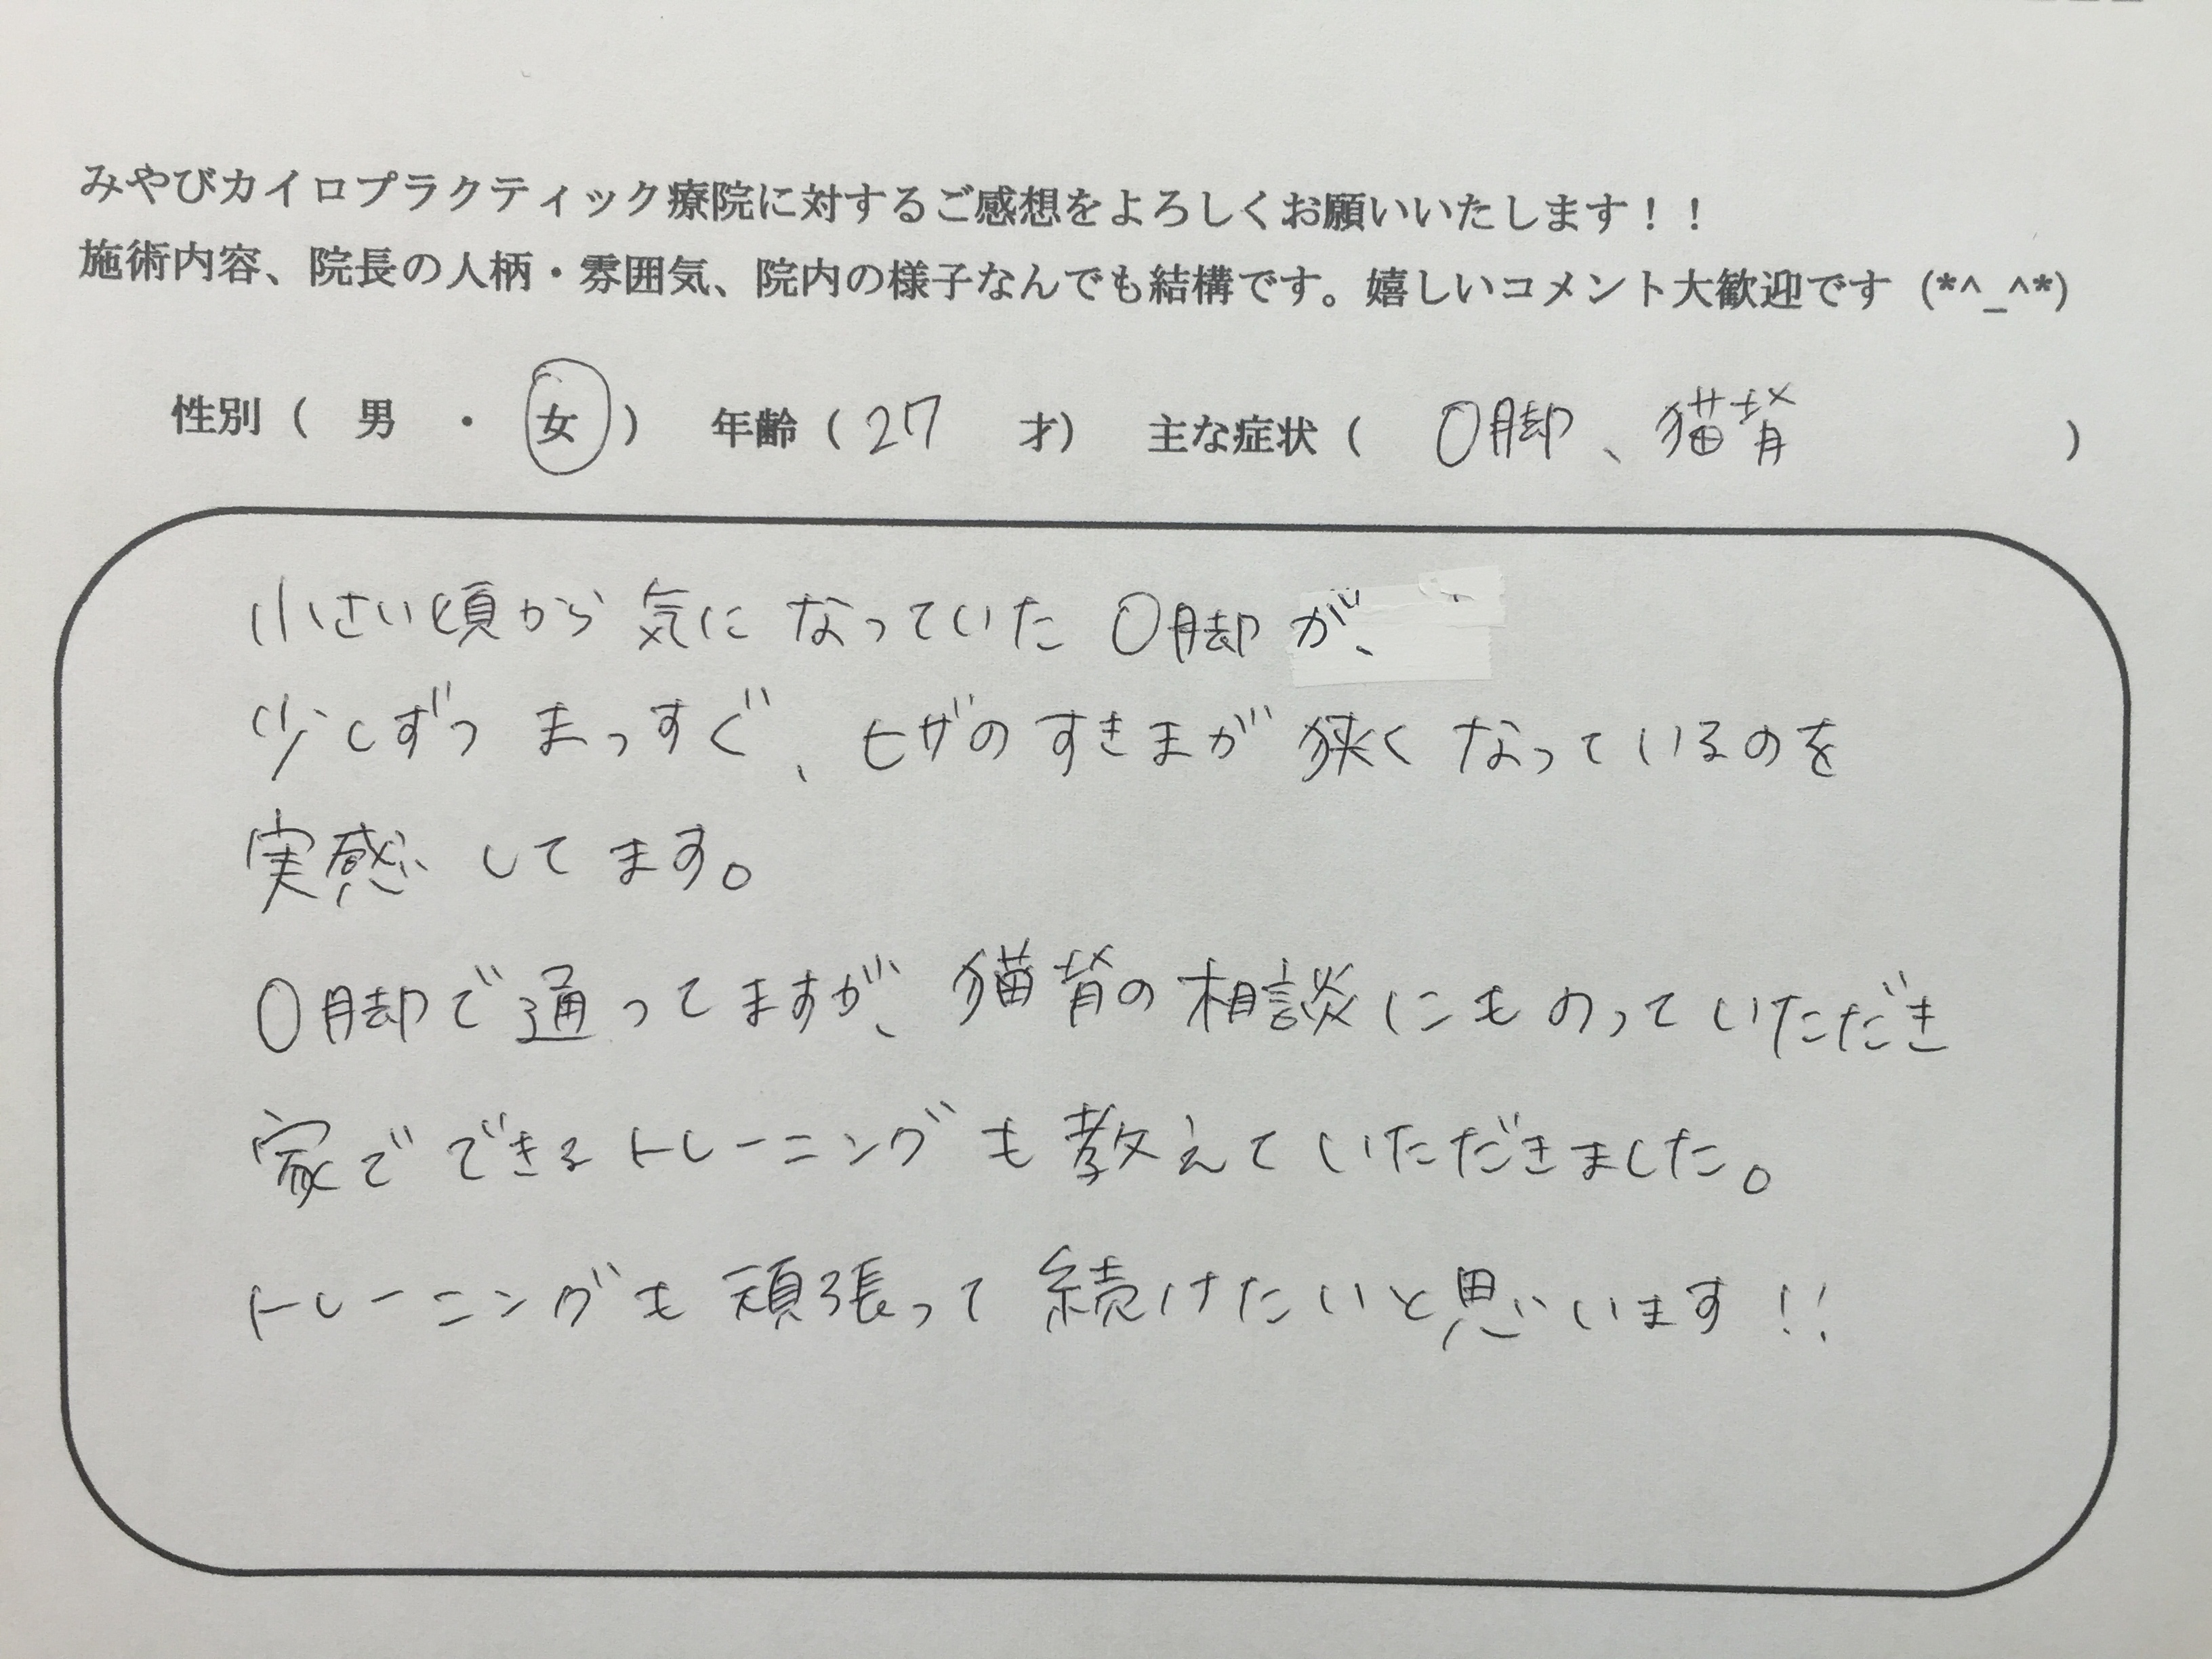 みやびカイロプラクティック療院に対するご感想をよろしくお願いいたします！！
施術内容、院長の人柄・雰囲気、院内の様子なんでも結構です。嬉しいコメント大歓迎です (*^_^*)
性別（ 男 ・ 女 ） 年齢（ 27 才） 主な症状（ O脚、猫背 ）
小さい頃から気になっていたO脚が、
少しずつまっすぐ、ヒザのすきまが狭くなっているのを
実感してます。
O脚で通ってますが、猫背の相談にものっていただき
家でできるトレーニングも教えていただきました。
トレーニングも頑張って続けたいと思います!!